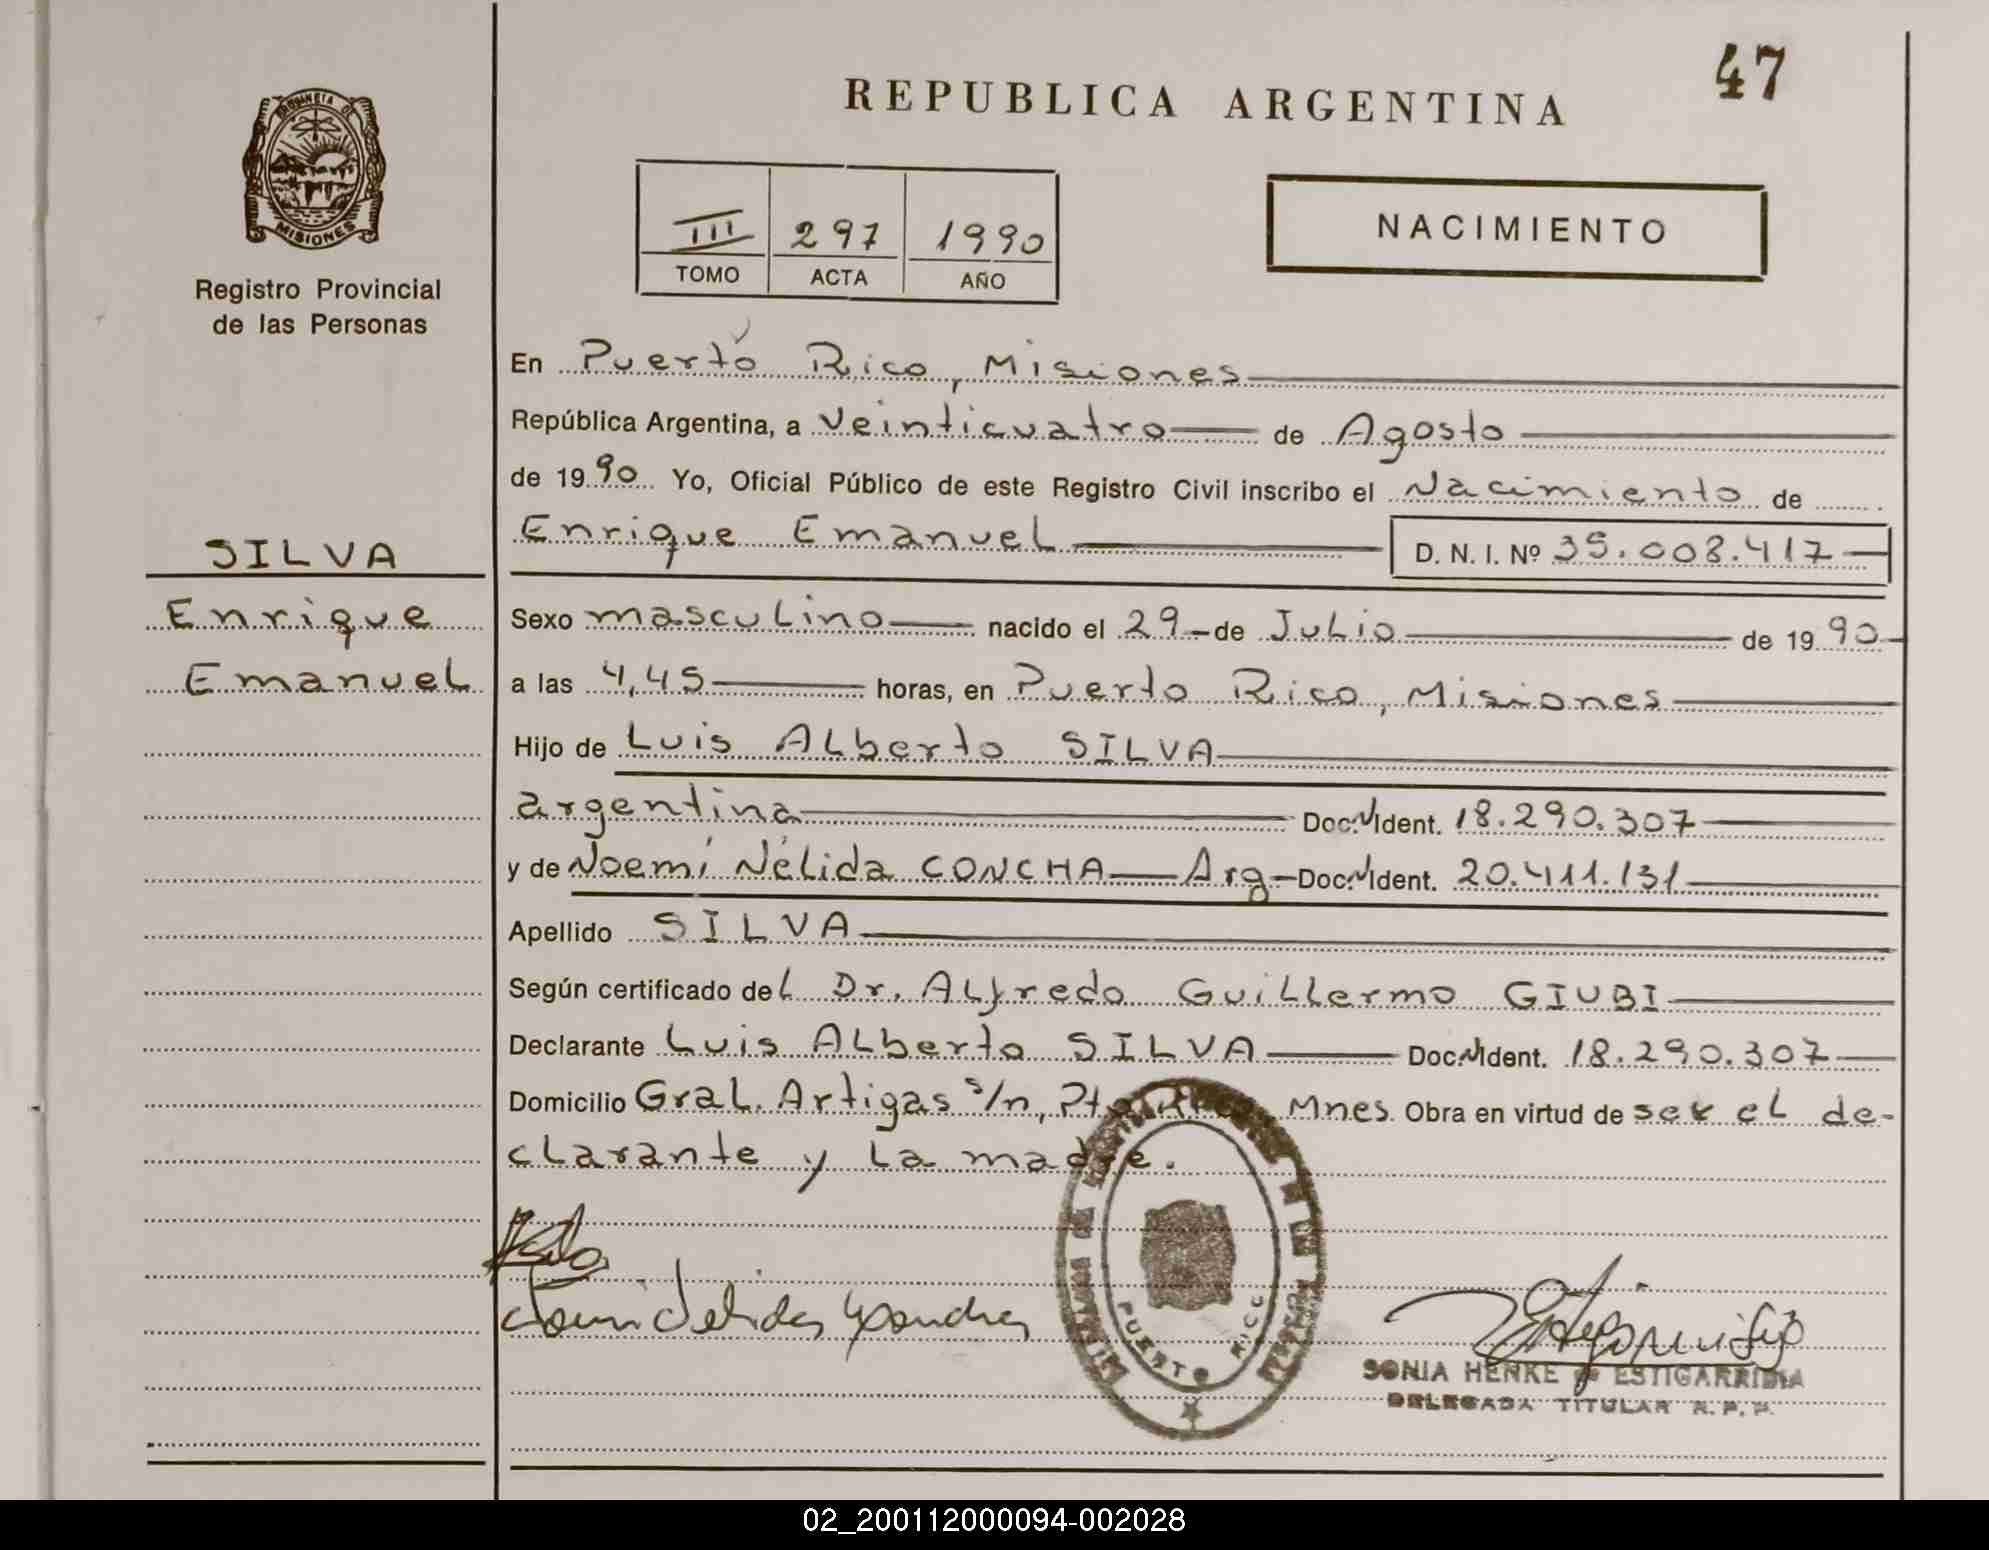 47
REPUBLICA ARGENTINA
PROVINCIA DE
MISIONES
Registro Provincial
de las Personas
III 297 1990
TOMO ACTA AÑO
NACIMIENTO
En Puerto Rico, Misiones
República Argentina, a veinticuatro de Agosto
de 1990 Yo, Oficial Público de este Registro Civil inscribo el Nacimiento de
Enrique Emanuel D. N. I. Nº 35.008.417
SILVA
Enrique
Emanuel
Sexo masculino nacido el 29 de Julio de 1990
a las 4,45 horas, en Puerto Rico, Misiones
Hijo de Luis Alberto SILVA
argentina Doc. N Ident. 18.290.307
y de Noemí Nélida CONCHA Arg Doc. N Ident. 20.411.131
Apellido SILVA
Según certificado del Dr. Alfredo Guillermo GIUBI
Declarante Luis Alberto SILVA Doc. N Ident. 18.290.307
Domicilio Gral. Artigas s/n, Pto Rico Mnes. Obra en virtud de ser el de-
clarante y la madre.
PUERTO RICO
SONIA HENKE de ESTIGARRIBIA
DELEGADA TITULAR R. P. P.
02_200112000094-002028